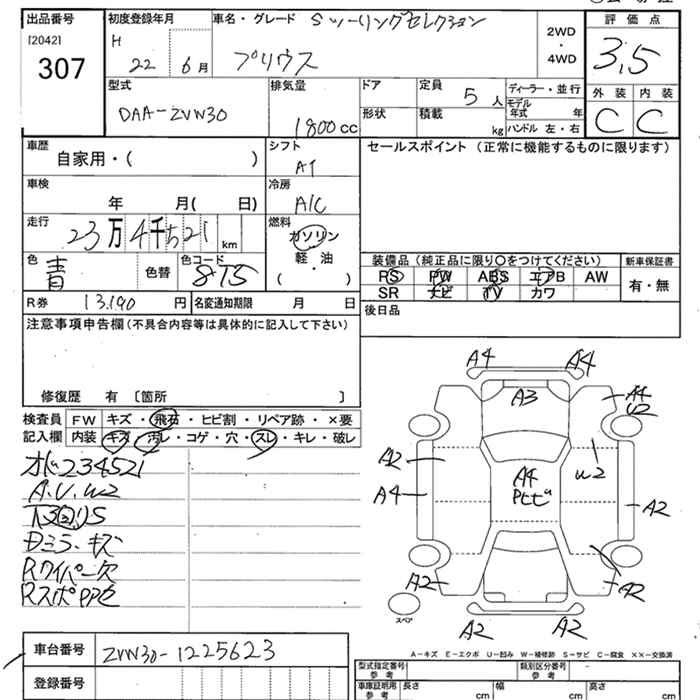 出品番号 初度登録年月 車名・グレード Sツーリングセレクション 評価点
[2042] H 2WD
307 22 6月 プリウス ・ 3.5
4WD
型式 排気量 ドア 定員 5人 ディーラー・並行 外装 内装
DAA-ZVW30 1800cc 形状 積載 kg モデル年式 年 C C
ハンドル 左・右
車歴 シフト セールスポイント (正常に機能するものに限ります)
自家用・( ) AT
車検 冷房
年 月( 日) A/C
走行 燃料
23万4千521km ガソリン
色 色コード 軽・油 装備品 (純正品に限り○をつけてください) 新車保証書
青 色替 8T5 ( ) PS PW ABS エアB AW 有・無
SR ナビ TV カワ
R券 13,190円 名変通知期限 月 日 後日品
注意事項申告欄 (不具合内容等は具体的に記入して下さい)
修復歴 有 [箇所 ]
検査員 FW キズ・飛石・ヒビ割・リペア跡・×要
記入欄 内装 キズ・汚レ・コゲ・穴・スレ・キレ・破レ
234521
A.U.W2
Dミラーキズ
Rワイパー欠
A4 A4
A3 A4
U2
A2 A4 W2
A4 A2
A2 A2
A2 A2
スペア
A-キズ E-エクボ U-凹み W-補修跡 S-サビ C-腐食 ××-交換済
車台番号 ZVW30-1225623
型式指定番号 参考 類別区分番号 参考
登録番号 車庫証明用 参考 長さ cm 幅 cm 高さ cm